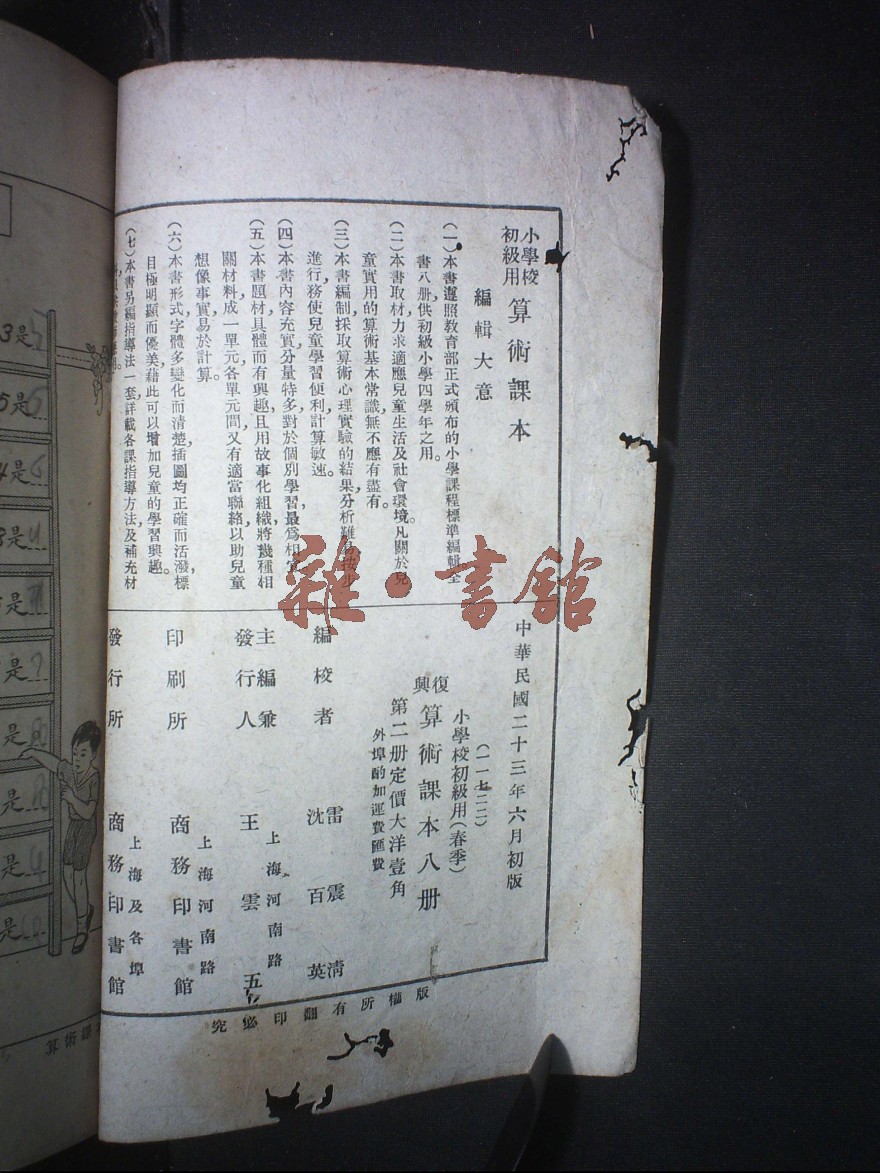 小學校
初級用
算術課本
編輯大意
(一)本書遵照教育部正式頒布的小學課程標準編輯全
書八册供初級小學四學年之用。
(二)本書取材力求適應兒童生活及社會環境凡關於兒
童實用的算術基本常識,無不應有盡有。
(三)本書編制採取算術心理實驗的結果,分析難易按步
進行務使兒童學習便利計算敏速。
(四)本書內容充實分量特多對於個別學習,最爲相宜
(五)本書題材具體而有興趣,且用故事化組織將幾種相
關材料成一單元各單元間,又有適當聯絡,以助兒童
想像事實,易於計算。
(六)本書形式字體多變化而清楚插圖均正確而活潑,標
目極明顯而優美,藉此可以增加兒童的學習興趣。
(七)本書另編指導法一套,詳載各課指導方法及補充材
中華民國二十三年六月初版
(一一七二二)
小學校初級用(春季)
復興
算術課本八册
第二册定價大洋壹角
外埠酌加運費匯費
編校者
雷震清
沈百英
主編兼
發行人
上海河南路
王雲五
印刷所
上海河南路
商務印書館
發行所
上海及各埠
商務印書館
版權所有翻印必究
雜·書館
3是5
5是
4是6
3是
是
是
是
是
是4
是
算術課